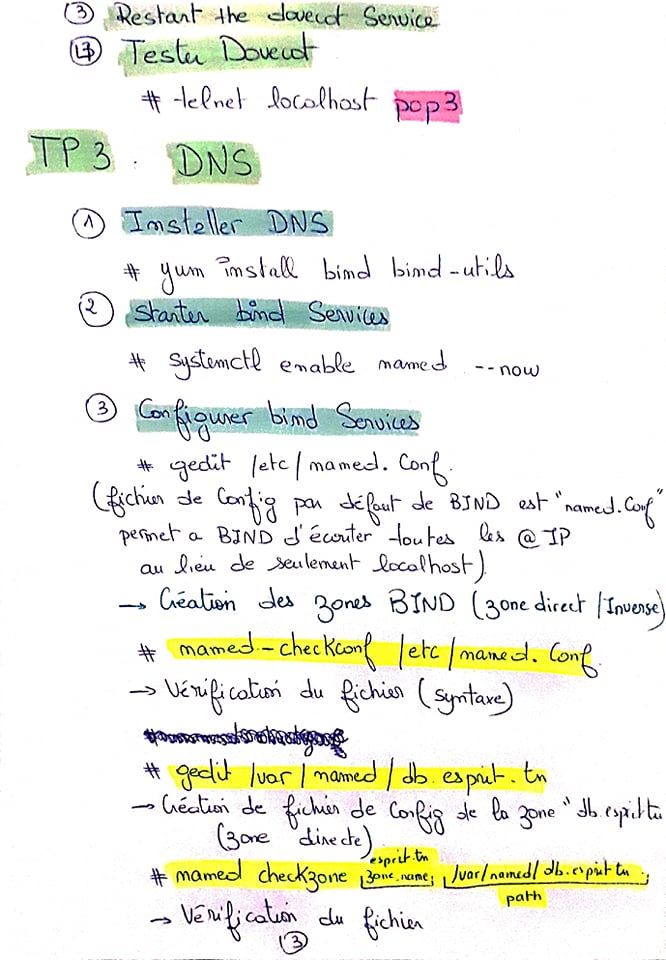 ③ Restart the dovecot Service
④ Tester Dovecot
# telnet localhost pop3
TP3 . DNS
① Installer DNS
# yum install bind bind-utils
② Starter bind Services
# systemctl enable named --now
③ Configurer bind Services
# gedit /etc/named.Conf.
(fichier de Config par défaut de BIND est "named.Conf"
permet a BIND d'écouter toutes les @IP
au lieu de seulement localhost)
→ Création des zones BIND (zone direct / Inverse)
# named-checkconf /etc/named.Conf.
→ Vérification du fichier (syntaxe)
# gedit /var/named/db.esprit.tn
→ Création de fichier de Config de la zone "db.esprit.tn
(zone directe)
esprit.tn
# named checkzone zone.name /var/named/db.esprit.tn
path
→ Vérification du fichier
③